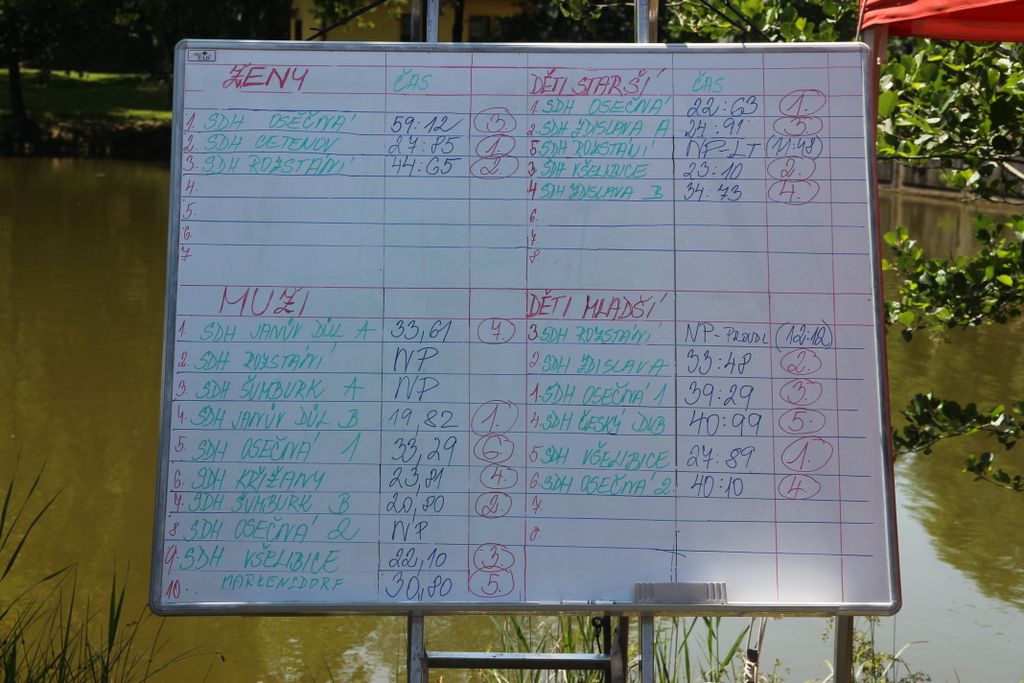 ŽENY ČAS
1. SDH OSEČNÁ 59:12 3.
2. SDH CETENOV 27:85 1.
3. SDH ROZSTÁNÍ 44:65 2.
4.
5.
6
7
DĚTI STARŠÍ ČAS
1. SDH OSEČNÁ 22:63 1.
2. SDH ZDISLAVA A 24:91 3.
5 SDH ROZSTÁNÍ NP-LT (11:48)
3 SDH VŠELIBICE 23:10 2.
4 SDH ZDISLAVA B 34:73 4.
6.
7.
8.
MUŽI
1. SDH JANŮV DŮL A 33,61 7.
2. SDH ROZSTÁNÍ NP
3. SDH ŠUMBURK A NP
4. SDH JANŮV DŮL B 19,82 1.
5. SDH OSEČNÁ 1 33,29 6.
6. SDH KŘIŽANY 23,81 4.
7. SDH ŠUMBURK B 20,80 2.
8 SDH OSEČNÁ 2 NP
9. SDH VŠELIBICE 22,10 3.
10. MARKENSDORF 30,80 5.
DĚTI MLADŠÍ
3 SDH ROZSTÁNÍ NP-PROUDL (12:12)
2 SDH ZDISLAVA 33:48 2.
1. SDH OSEČNÁ 1 39:29 3.
4. SDH ČESKÝ DUB 40:99 5.
5 SDH VŠELIBICE 27:89 1.
6. SDH OSEČNÁ 2. 40:10 4.
7.
8.